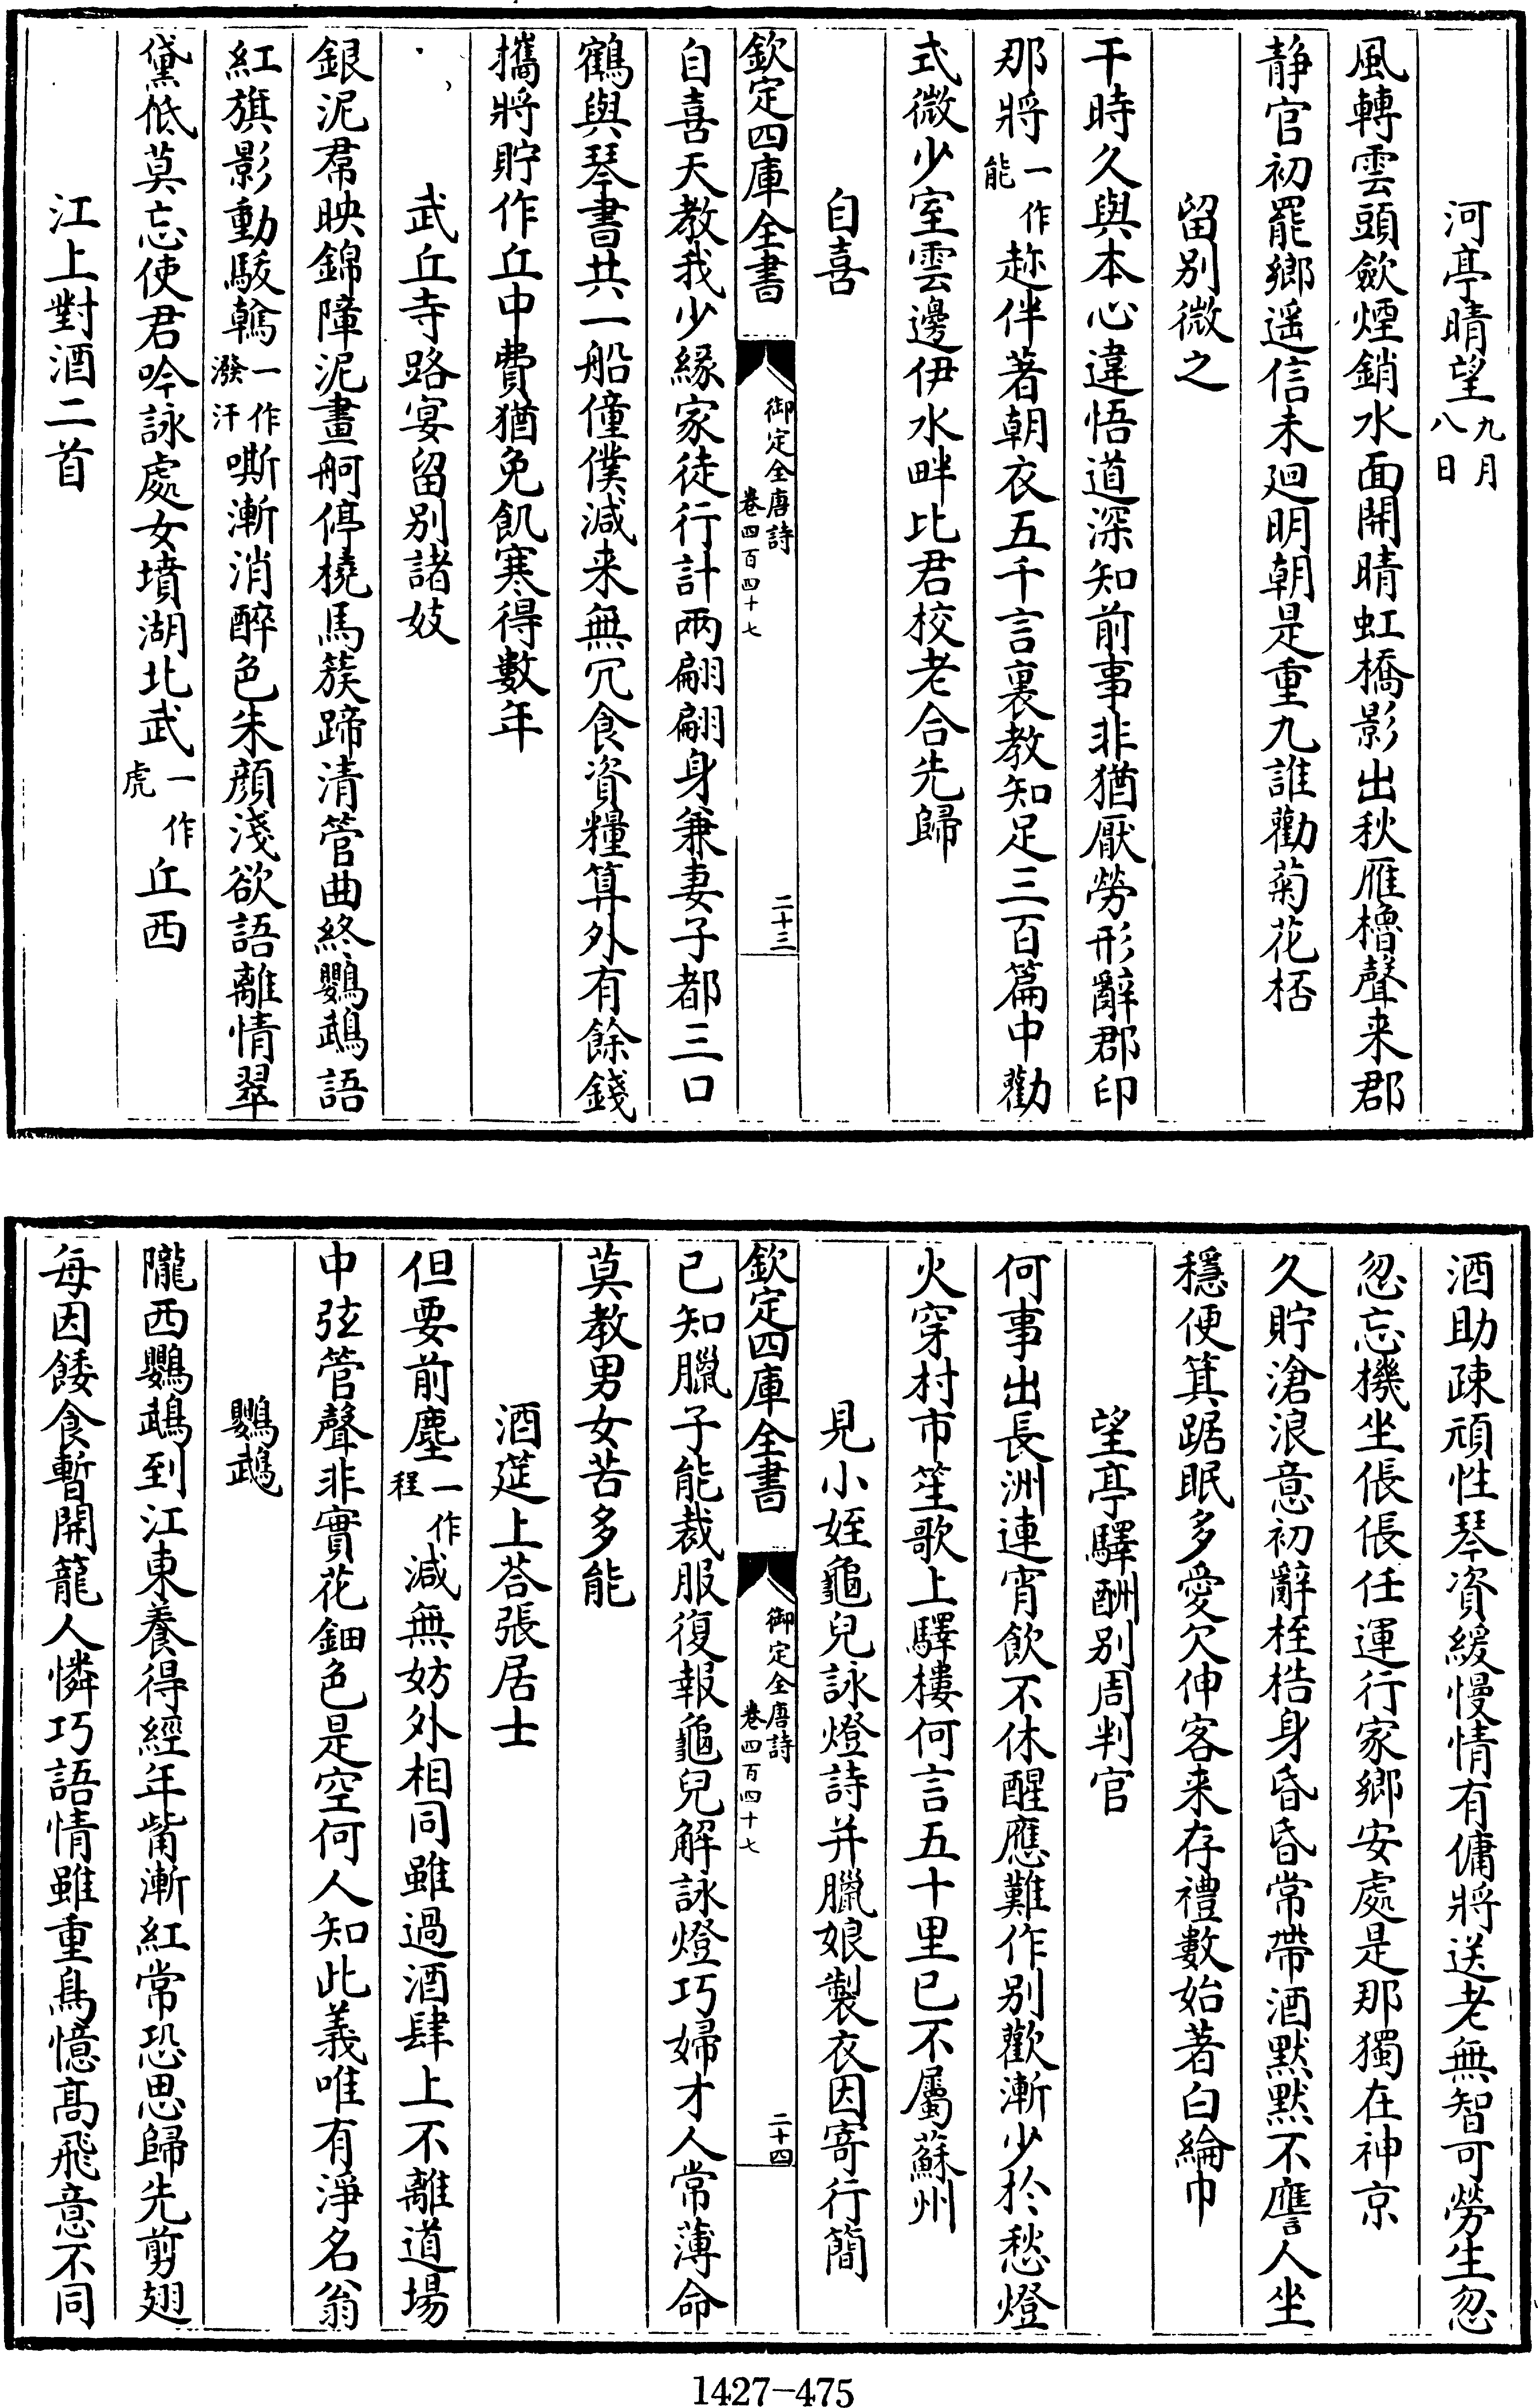 河亭晴望九月八日
風轉雲頭歛煙銷水面開晴虹橋影出秋雁櫓聲来郡
静官初罷鄉遥信未廻明朝是重九誰勸菊花桮
留别微之
干時久與本心違悟道深知前事非猶厭勞形辭郡印
那將一作能趂伴著朝衣五千言裏教知足三百篇中勸
式微少室雲邊伊水畔比君校老合先歸
自喜
欽定四庫全書
御定全唐詩
卷四百四十七
二十三
自喜天教我少緣家徒行計兩翩翩身兼妻子都三口
鶴與琴書共一船僮僕減来無冗食資糧算外有餘錢
攜將貯作丘中費猶免飢寒得數年
武丘寺路宴留别諸妓
銀泥帬映錦障泥畫舸停橈馬簇蹄清管曲終鸚鵡語
紅旗影動駮䮧一作潑汗嘶漸消醉色朱顔淺欲語離情翠
黛低莫忘使君吟詠處女墳湖北武一作虎丘西
江上對酒二首
酒助疎頑性琴資緩慢情有傭將送老無智可勞生忽
忽忘機坐倀倀任運行家鄉安處是那獨在神京
久貯滄浪意初辭桎梏身昏昏常帶酒默默不譍人坐
穩便箕踞眠多愛欠伸客来存禮數始著白綸巾
望亭驛酬别周判官
何事出長洲連宵飲不休醒應難作别歡漸少於愁燈
火穿村市笙歌上驛樓何言五十里已不屬蘇州
見小姪龜兒詠燈詩并臘娘製衣因寄行簡
欽定四庫全書
御定全唐詩
卷四百四十七
二十四
已知臘子能裁服復報龜兒解詠燈巧婦才人常薄命
莫教男女苦多能
酒筵上荅張居士
但要前塵一作程減無妨外相同雖過酒肆上不離道場
中弦管聲非實花鈿色是空何人知此義唯有淨名翁
鸚鵡
隴西鸚鵡到江東養得經年觜漸紅常恐思歸先剪翅
每因餧食暫開籠人憐巧語情雖重鳥憶高飛意不同
1427-475